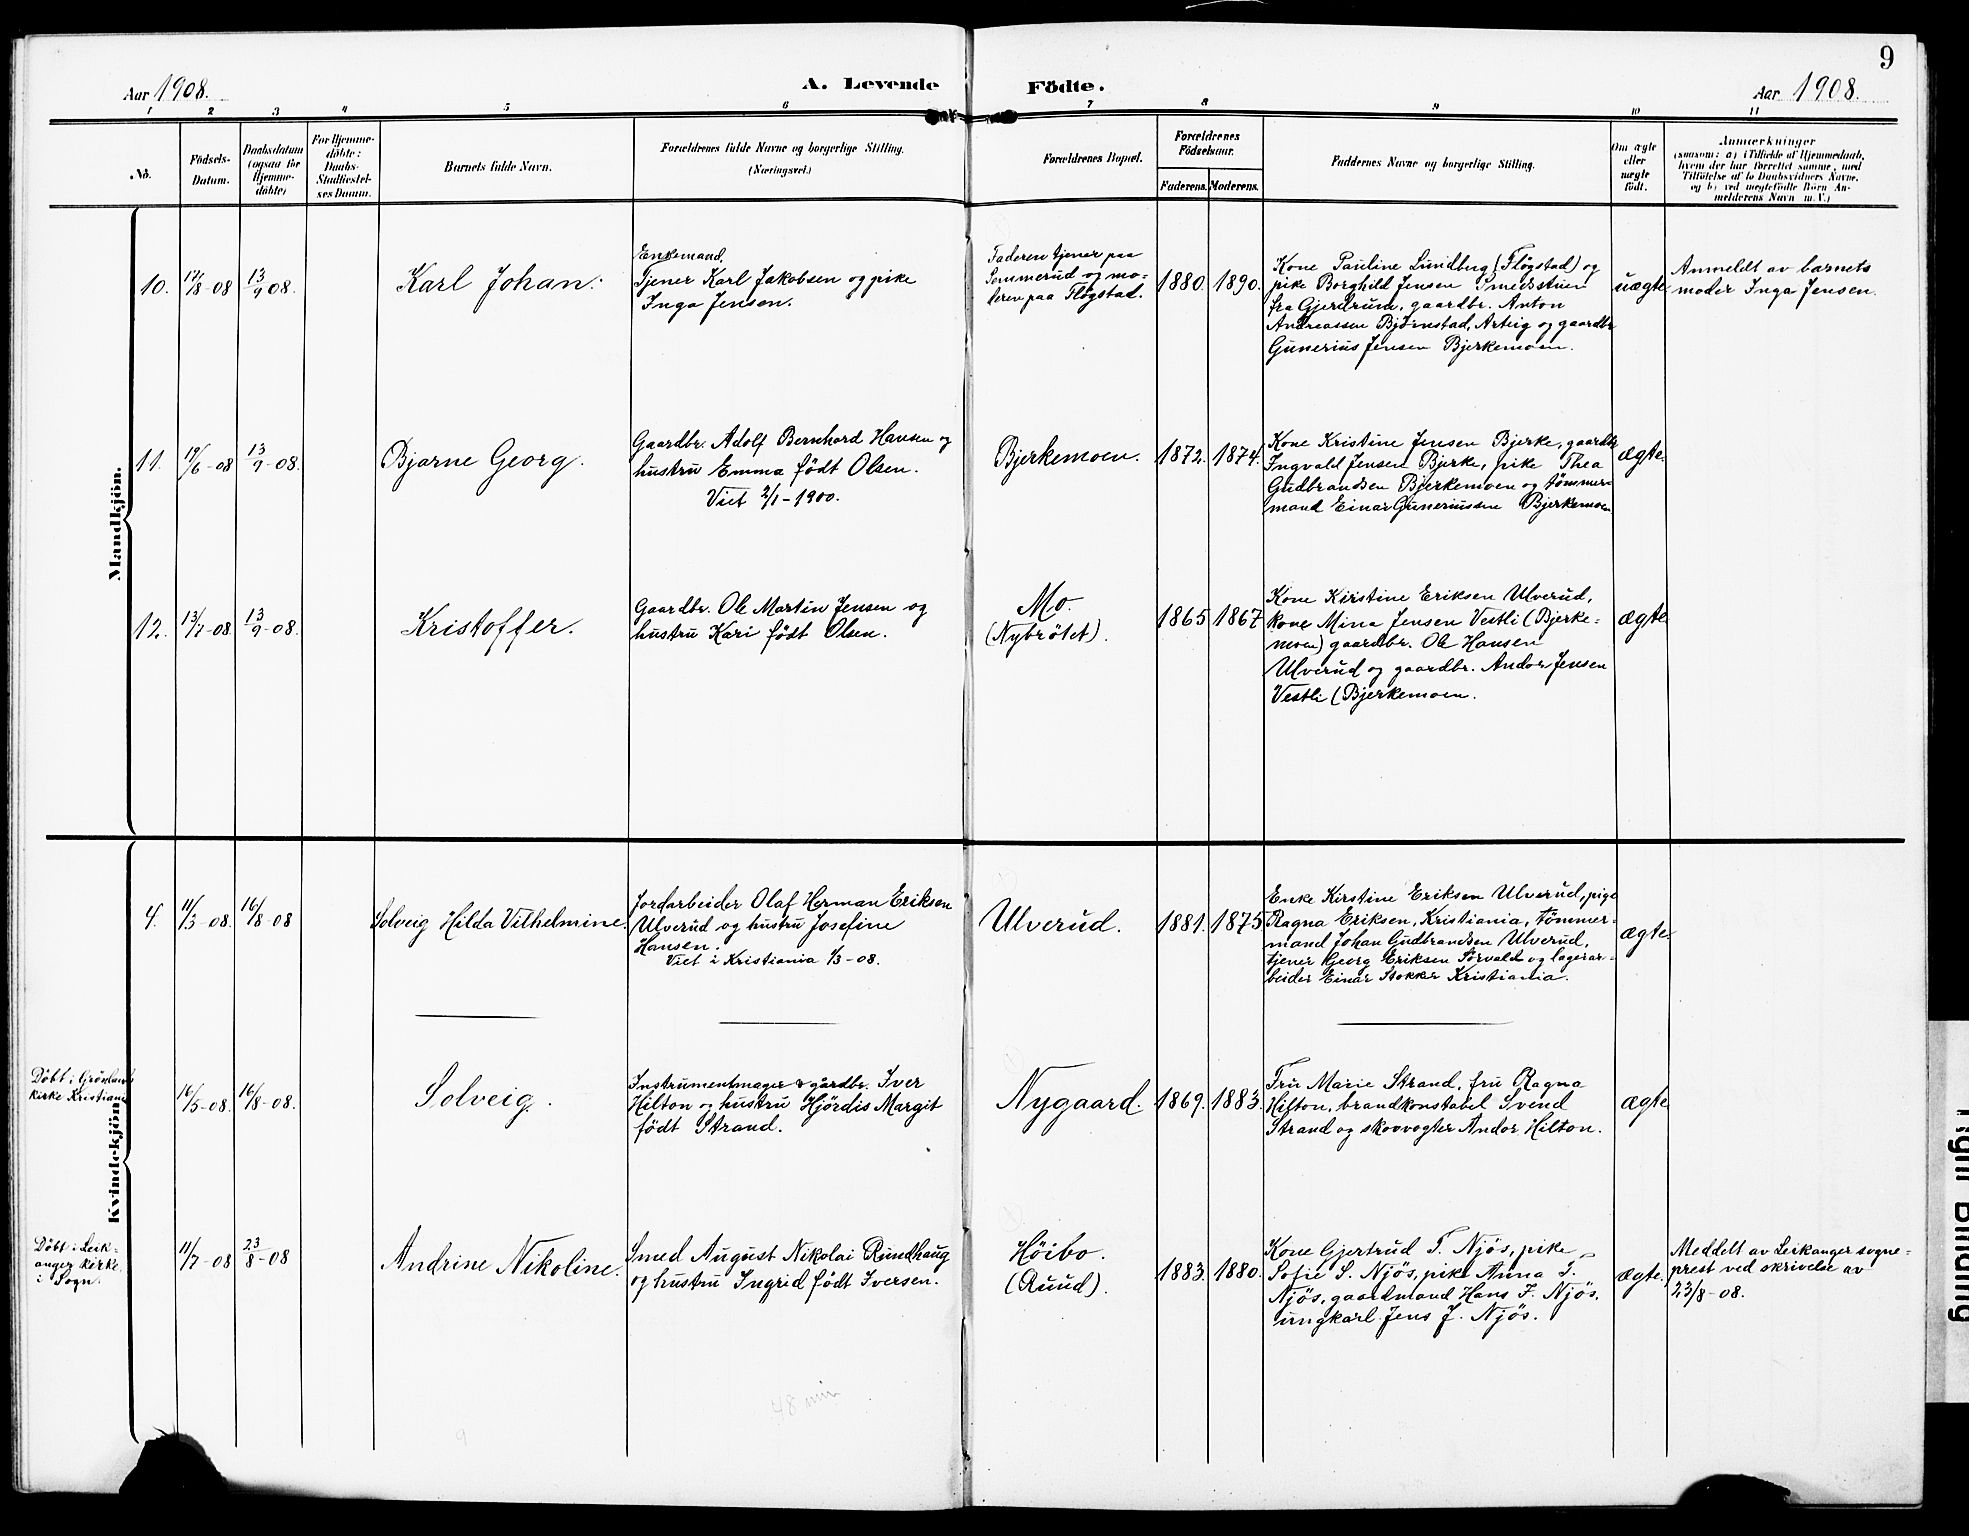 9
Aar 1908.
A. Levende Födte.
Aar 1908.
1 2 3 4 5 6 7 8 9 10 11
No.
Födsels-
Datum.
Daabsdatum
(ogsaa for
Hjemme-
döbte)
For Hjemme-
döbte:
Daabs-
Stadfæstel-
ses Datum.
Barnets fulde Navn.
Forældrenes fulde Navne og borgerlige Stilling.
(Næringsvei.)
Forældrenes Bopæl.
Forældrenes
Födselsaar.
Faderens. Moderens.
Faddernes Navne og borgerlige Stilling.
Om ægte
eller
uægte
født.
Anmærkninger
(saasom: a) i Tilfælde af Hjemmedaab,
hvem der har forrettet samme, med
Tilföielse af to Daabsvidners Navne.
og b) ved uægtefödte Börn An-
melderens Navn m.V.)
Mandkjön.
10.
17/8-08
13/9 08.
Karl Johan.
Enkemand.
Tjener Karl Jakobsen og pike
Inga Jensen.
Faderen tjener paa
Sommerud og mo-
deren paa Fløgstad.
1880.
1890.
Kone Pauline Lundberg (Fløgstad) og
pike Borghild Jensen Smedstuen
fra Gjerdrum, gaardbr. Anton
Andreassen Bjørnstad, Arteig og gaardbr
Gunerius Jensen Bjerkemoen.
uægte
Anmeldt av barnets
moder Inga Jensen.
11.
19/6-08
13/9-08.
Bjarne Georg.
Gaardbr. Adolf Bernhard Hansen og
hustru Emma født Olsen.
Viet 2/1-1900.
Bjerkemoen.
1872.
1874.
Kone Kristine Jensen Bjerke, gaardbr
Ingvald Jensen Bjerke, pike Thea
Gudbrandsen Bjerkemoen og tømmer-
mand Einar Guneriussen Bjerkemoen
ægte.
12.
13/7-08
13/9-08.
Kristoffer.
Gaardbr. Ole Martin Jensen og
hustru Kari født Olsen.
Mo.
(Nybrötet).
1865
1867
Kone Kirstine Eriksen Ulverud,
kone Mina Jensen Vestli (Bjerke-
moen) gaardbr. Ole Hansen
Ulverud og gaardbr. Andor Jensen
Vestli (Bjerkemoen.
ægte
Kvindekjön.
4.
11/3-08.
16/8-08
Solveig Hilda Vilhelmine.
Jordarbeider Olaf Herman Eriksen
Ulverud og hustru Josefine
Hansen.
Viet i Kristiania 1/3-08.
Ulverud.
1881.
1875
Enke Kirstine Eriksen Ulverud, pige
Ragna Eriksen, Kristiania, tömmer-
mand Johan Gudbrandsen Ulverud,
tjener Georg Eriksen Sørvald og lagerar-
beider Einar Stokke Kristiania.
ægte.
Döbt i Grönlands
kirke Kristiania
16/5-08.
16/8-08.
Solveig.
Instrumentmager & gårdbr. Iver
Hilton og hustru Hjördis Margit
födt Strand.
Nygaard.
1869.
1883.
Fru Marie Strand, fru Ragna
Hilton, brandkonstabel Svend
Strand og skovvogter Andor Hilton.
ægte
Döbt i Leik-
anger kirke
i Sogn.
11/7-08
23/8-08
Andrine Nikoline.
Smed August Nikolai Rundhaug
og hustru Ingrid født Iversen.
Höibo.
(Ruud).
1883.
1880.
Kone Gjertrud T. Njös, pike
Sofie S. Njös, pike Anna I.
Njös, gaardmand Hans J. Njös,
ungkarl Jens J. Njös.
ægte.
Meddelt av Leikanger sogne-
prest ved skrivelse av
23/8-08.
48 min
9